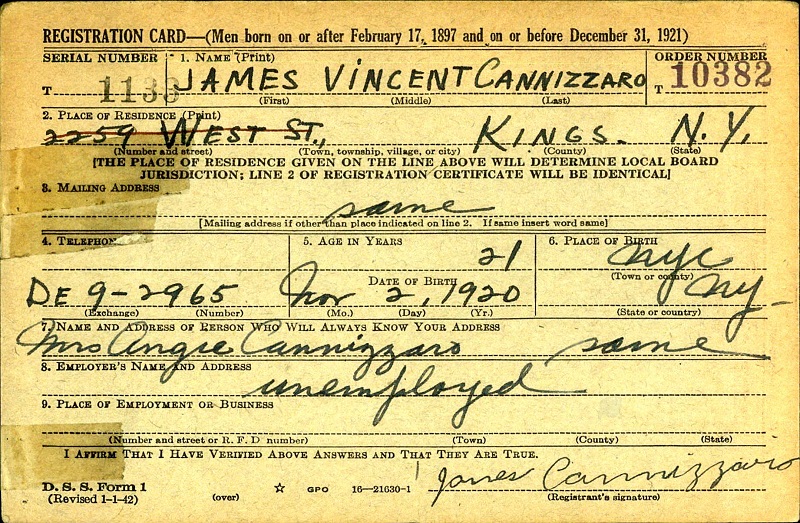 REGISTRATION CARD—(Men born on or after February 17, 1897 and on or before December 31, 1921)
SERIAL NUMBER 1. NAME (Print) ORDER NUMBER
T 1133 JAMES VINCENT CANNIZZARO T 10382
(First) (Middle) (Last)
2. PLACE OF RESIDENCE (Print)
2259 WEST ST., KINGS. N.Y.
(Number and street) (Town, township, village, or city) (County) (State)
[THE PLACE OF RESIDENCE GIVEN ON THE LINE ABOVE WILL DETERMINE LOCAL BOARD
JURISDICTION; LINE 2 OF REGISTRATION CERTIFICATE WILL BE IDENTICAL]
3. MAILING ADDRESS
same
[Mailing address if other than place indicated on line 2. If same insert word same]
4. TELEPHONE 5. AGE IN YEARS 6. PLACE OF BIRTH
21 NYC
DATE OF BIRTH (Town or county)
DE 9-2965 Nov 2, 1920 NY-
(Exchange) (Number) (Mo.) (Day) (Yr.) (State or country)
7. NAME AND ADDRESS OF PERSON WHO WILL ALWAYS KNOW YOUR ADDRESS
Mrs Angie Cannizzaro same
8. EMPLOYER'S NAME AND ADDRESS
unemployed
9. PLACE OF EMPLOYMENT OR BUSINESS
(Number and street or R. F. D number) (Town) (County) (State)
I AFFIRM THAT I HAVE VERIFIED ABOVE ANSWERS AND THAT THEY ARE TRUE.
James Cannizzaro
D. S. S. Form 1
(Revised 1-1-42) (over) ☆ GPO 16—21630-1 (Registrant's signature)